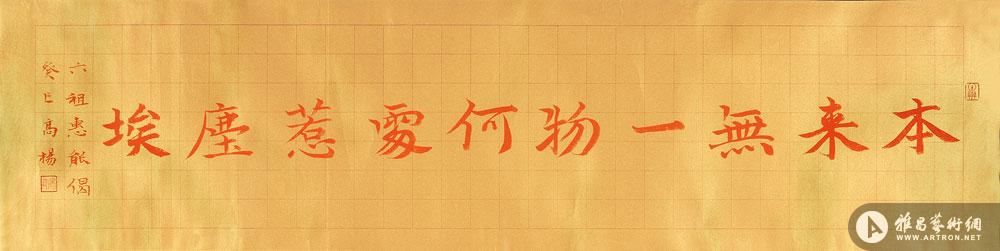 本来無一物何處惹塵埃
六祖惠能偈
癸巳高楊
雅昌藝術網
WWW.ARTRON.NET